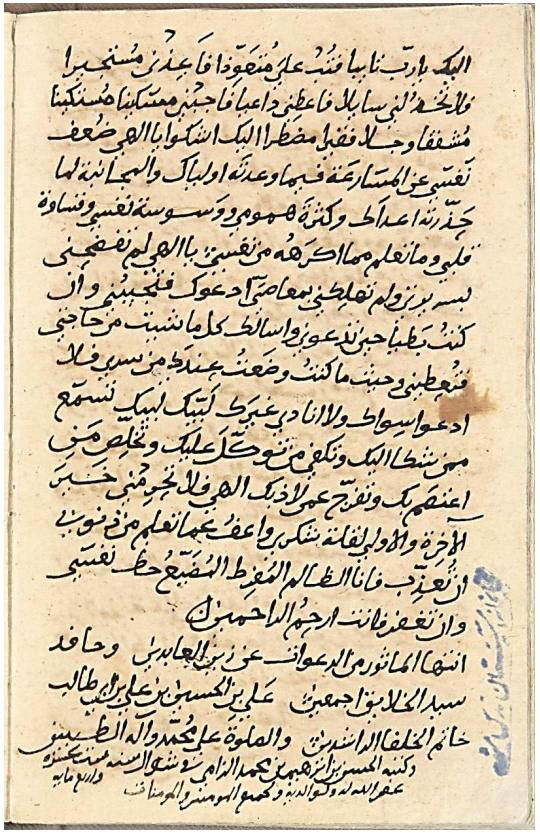 اليك يا رب تايبا فتب علي متعوذا فاعذني مستجيرا
فلا تخذلني سايلا فاعطني داعيا فاجبني مسكينا مستكينا
مشفقا وجلا فقيرا مضطرا اليك اشكوا يا الهي ضعف
نفسي عن المسارعة فيما وعدته اولياك والمجانبة لما
حذرته اعداك وكثرة همومي ووسوسة نفسي وقساوة
قلبي وما تعلم مما اكرهه من نفسي يا الهي لم تفضحني
بسريرتي ولم تهلكني بمعاصي ادعوك فتجيبني وان
كنت بطيا حين تدعوني واسالك كل ما شيت من حاجتي
فتعطيني وحيث ما كنت وضعت عندك من سري فلا
ادعوا سواك ولا انادي غيرك لبيك لبيك تسمع
ممن شكا اليك وتكفي من توكل عليك وتخلص من
اعتصم بك وتفرج عمن لاذ بك الهي فلا تحرمني خير
الآخرة والاولى لقلة شكري واعف عما تعلم من ذنوبي
ان تعذب فانا الظالم المفرط المضيع حظ نفسي
وان تغفر فانت ارحم الراحمين
انتها الماثور من الدعوات عن زين العابدين وحافد
سيد الخلايق اجمعين علي بن الحسين بن علي بن ابي طالب
خاتم الخلفا الراشدين والصلوة على محمد وآله الطيبين
وكتبه الحسين بن ابرهيم بن محمد الزامي شوال سنة
غفر الله له ولوالديه ولجميع المومنين والمومنات واربع مايه